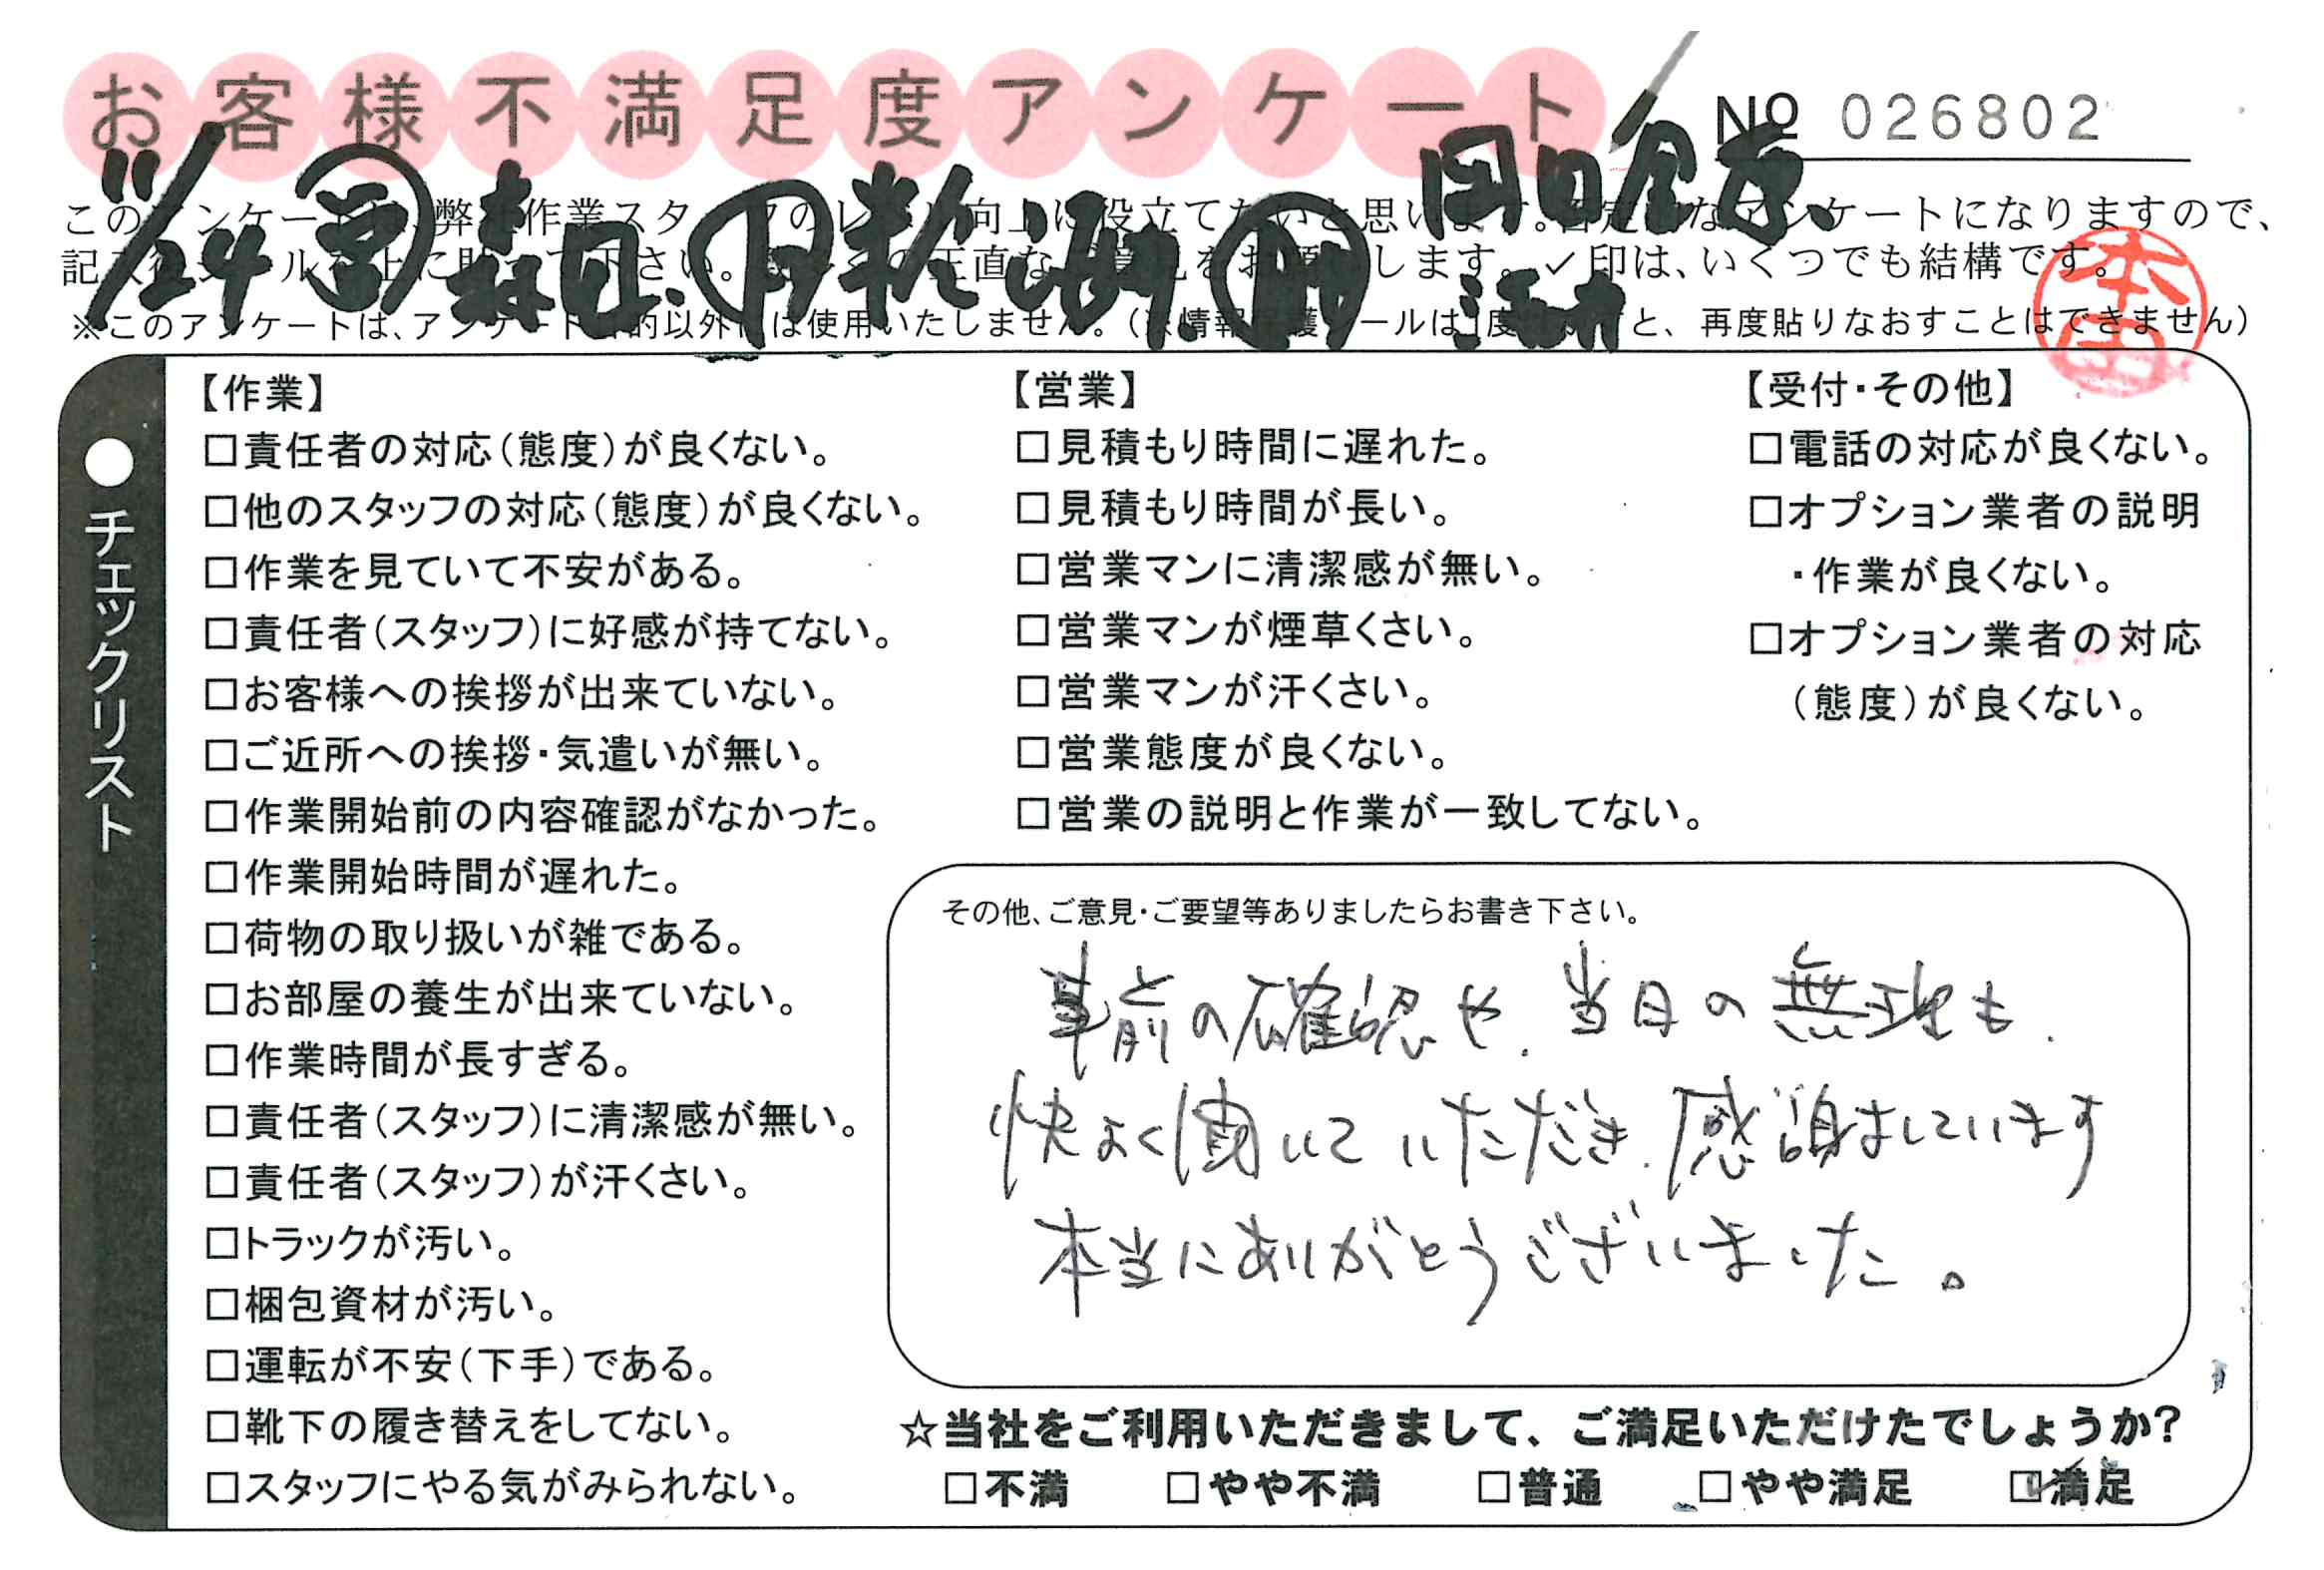 お客様不満足度アンケート
No 026802
11/24 営
このアンケートは、弊社作業スタッフのレベル向上に役立てたいと思います。否定的なアンケートになりますので、
記入後シールを上に貼って下さい。 の正直なご意見をお願いします。✓印は、いくつでも結構です。
※このアンケートは、アンケート目的以外には使用いたしません。( 情報保護シールは 度 と、再度貼りなおすことはできません)
本田
●チェックリスト
【作業】
□責任者の対応(態度)が良くない。
□他のスタッフの対応(態度)が良くない。
□作業を見ていて不安がある。
□責任者(スタッフ)に好感が持てない。
□お客様への挨拶が出来ていない。
□ご近所への挨拶・気遣いが無い。
□作業開始前の内容確認がなかった。
□作業開始時間が遅れた。
□荷物の取り扱いが雑である。
□お部屋の養生が出来ていない。
□作業時間が長すぎる。
□責任者(スタッフ)に清潔感が無い。
□責任者(スタッフ)が汗くさい。
□トラックが汚い。
□梱包資材が汚い。
□運転が不安(下手)である。
□靴下の履き替えをしてない。
□スタッフにやる気がみられない。
【営業】
□見積もり時間に遅れた。
□見積もり時間が長い。
□営業マンに清潔感が無い。
□営業マンが煙草くさい。
□営業マンが汗くさい。
□営業態度が良くない。
□営業の説明と作業が一致してない。
【受付・その他】
□電話の対応が良くない。
□オプション業者の説明
・作業が良くない。
□オプション業者の対応
(態度)が良くない。
その他、ご意見・ご要望等ありましたらお書き下さい。
事前の確認や、当日の無理も、
快よく聞いていただき、感謝しています
本当にありがとうございました。
☆当社をご利用いただきまして、ご満足いただけたでしょうか?
□不満 □やや不満 □普通 □やや満足 ☑満足